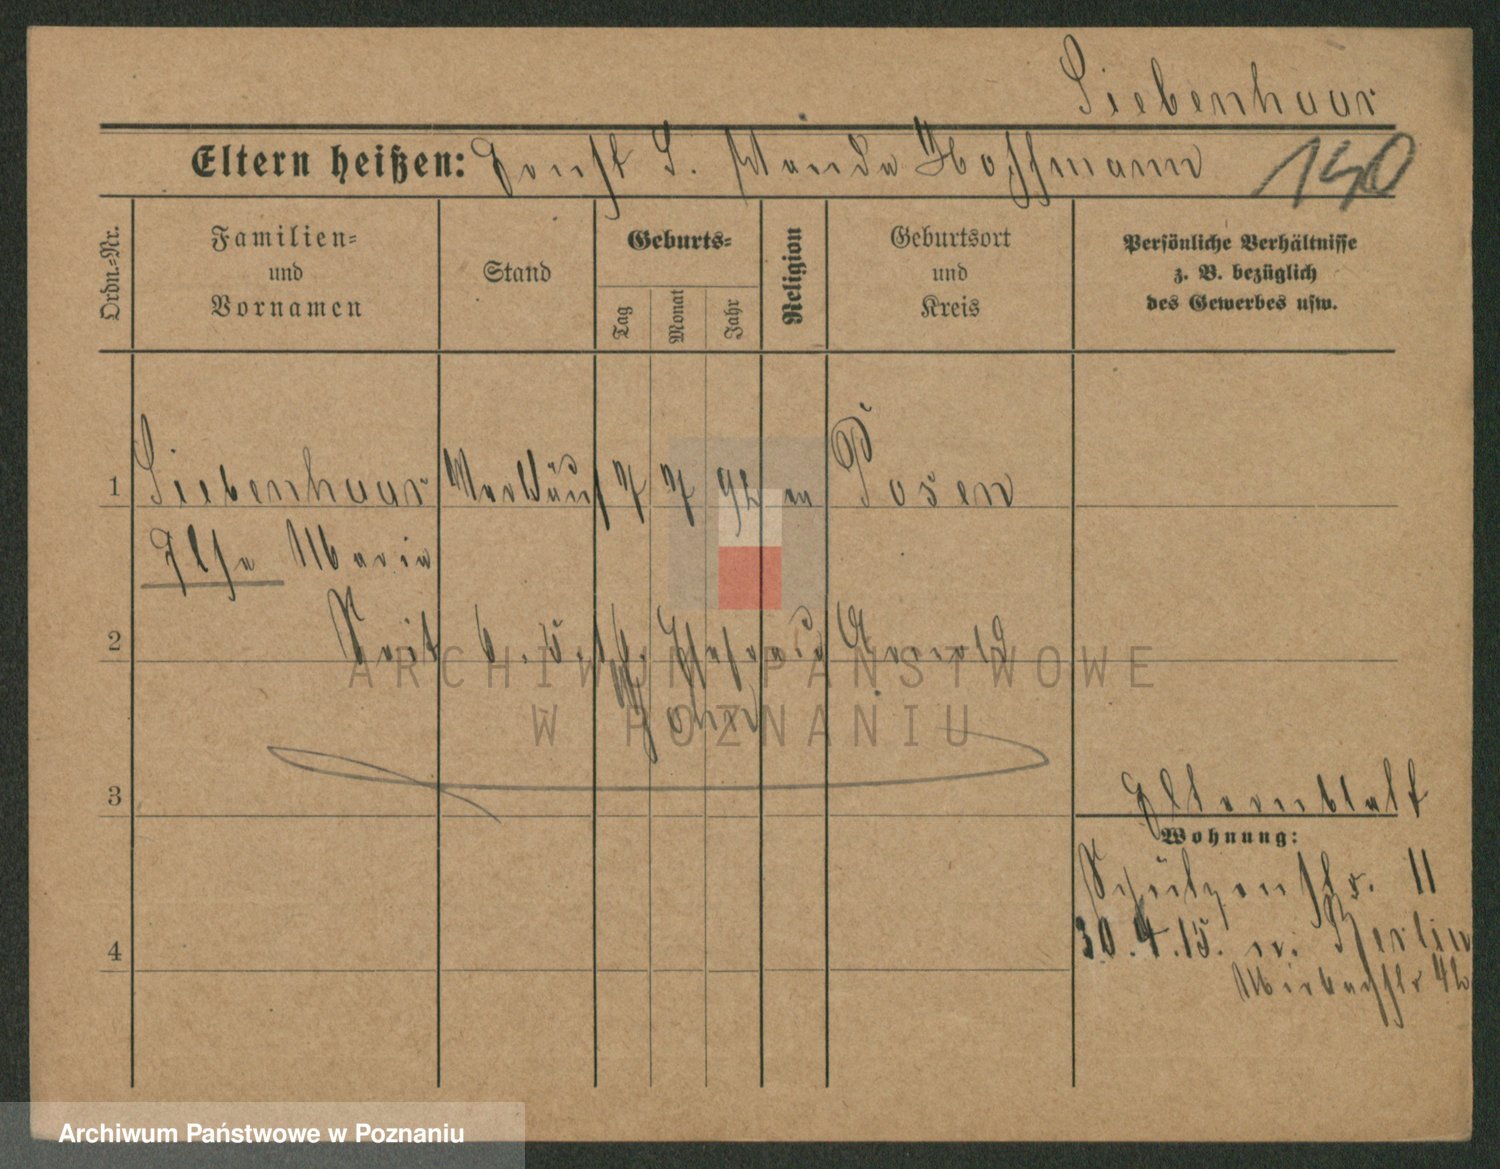 Siebenhaar
Eltern heißen: Ernst S. Wanda Hoffmann 140
Ordn.-Nr.
Familien-
und
Vornamen
Stand
Geburts-
Tag
Monat
Jahr
Religion
Geburtsort
und
Kreis
Persönliche Verhältnisse
z. B. bezüglich
des Gewerbes usw.
1 Siebenhaar 7 7 92 ev Posen
Ilse Maria
2 Seit 6. 5. 16. Ehefrau Arnold
3
Elternblatt
Wohnung:
Schützenstr. 11
30.4.15. n. Berlin
Mirbachstr 42
4
ARCHIWUM PAŃSTWOWE
W POZNANIU
Archiwum Państwowe w Poznaniu